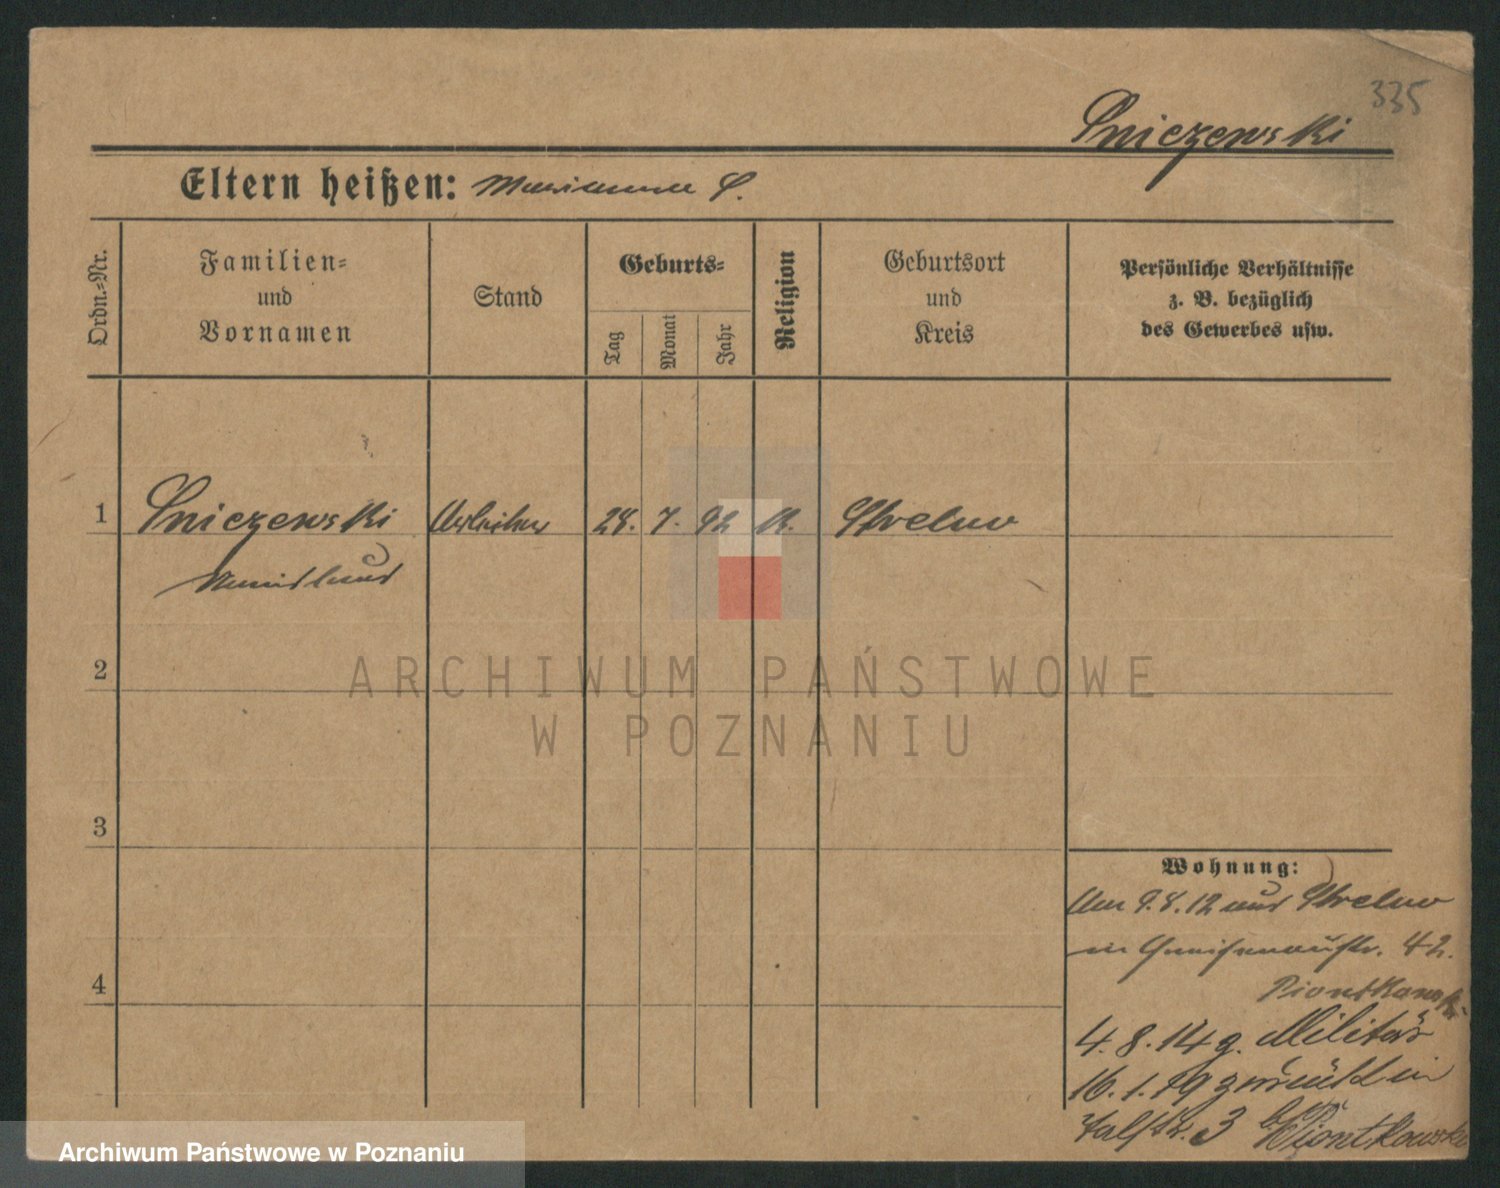 335
Sniezewski
Eltern heißen: Marianna S.
Ordn.=Nr.
Familien=
und
Vornamen
Stand
Geburts=
Tag
Monat
Jahr
Religion
Geburtsort
und
Kreis
Persönliche Verhältnisse
z. B. bezüglich
des Gewerbes usw.
1
Sniezewski
Arbeiter
28. 7. 92
K.
Strelno
2
ARCHIWUM PAŃSTWOWE
W POZNANIU
3
4
Wohnung:
Am 9.8.12 aus Strelno
in Gneisenaustr. 42.
Piontkowski
4.8.14 z. Militär
16.1.19 zurück in
3 b. Piontkowski
Archiwum Państwowe w Poznaniu